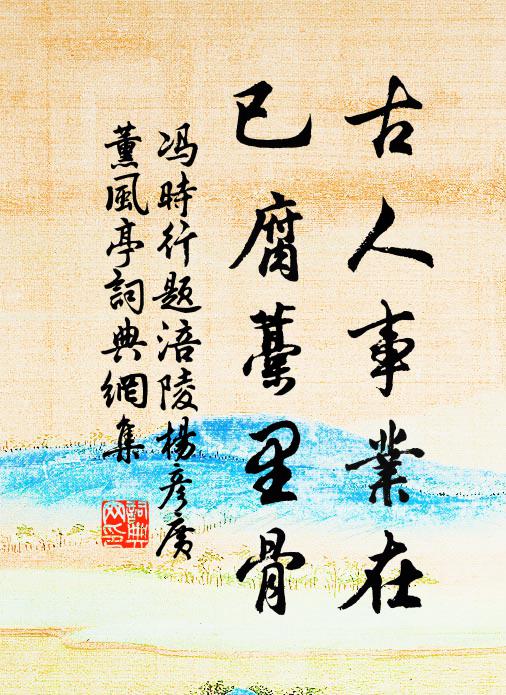 古人事業在
已腐藁里骨
冯時行题涪陵楊彦廣
薰風亭詞典網集
詞典